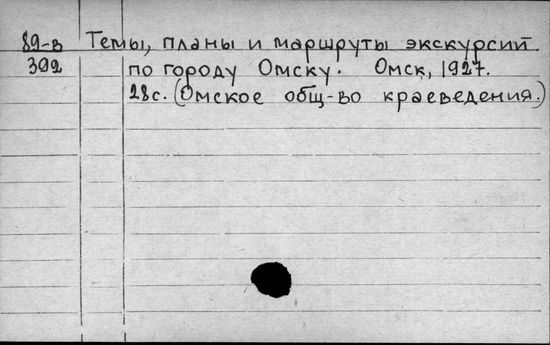 89-в Темы, планы и маршруты экскурсий
392 по городу Омску. Омск, 1927.
28с. (Омское общ-во краеведения.)